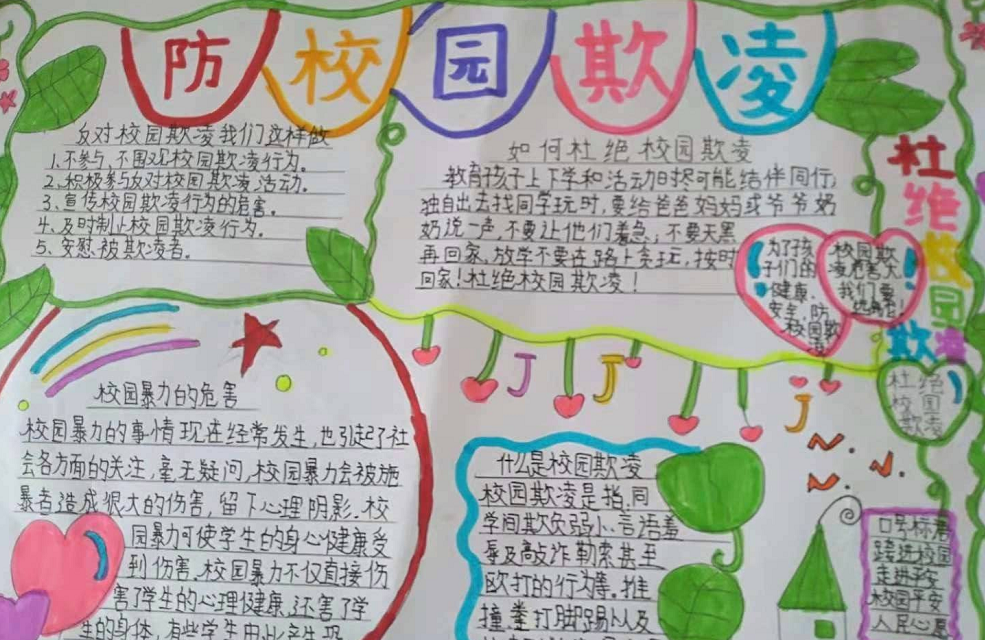 防校园欺凌
反对校园欺凌我们这样做
1、不参与、不围观校园欺凌行为。
2、积极参与反对校园欺凌活动。
3、宣传校园欺凌行为的危害。
4、及时制止校园欺凌行为。
5、安慰被欺凌者。
如何杜绝校园欺凌
教育孩子上下学和活动时尽可能结伴同行，
独自出去找同学玩时，要给爸爸妈妈或爷爷奶
奶说一声，不要让他们着急；不要天黑
再回家，放学不要在路上贪玩，按时
回家！杜绝校园欺凌！
为了孩
子们的
健康、
安全，防
校园欺
凌
校园欺
凌危害大，
我们要
杜绝校园欺凌
杜绝
校园
欺凌
校园暴力的危害
校园暴力的事情现在经常发生，也引起了社
会各方面的关注，毫无疑问，校园暴力会被施
暴者造成很大的伤害，留下心理阴影。校
园暴力可使学生的身心健康受
到伤害。校园暴力不仅直接伤
害了学生的心理健康，还害了学
生的身体，有些学生由此产生
什么是校园欺凌
校园欺凌是指同
学间欺负弱小、言语羞
辱及敲诈勒索甚至
殴打的行为等。推
撞、拳打脚踢以及
口号标语
跨进校园
走进平安
校园平安
人民心愿